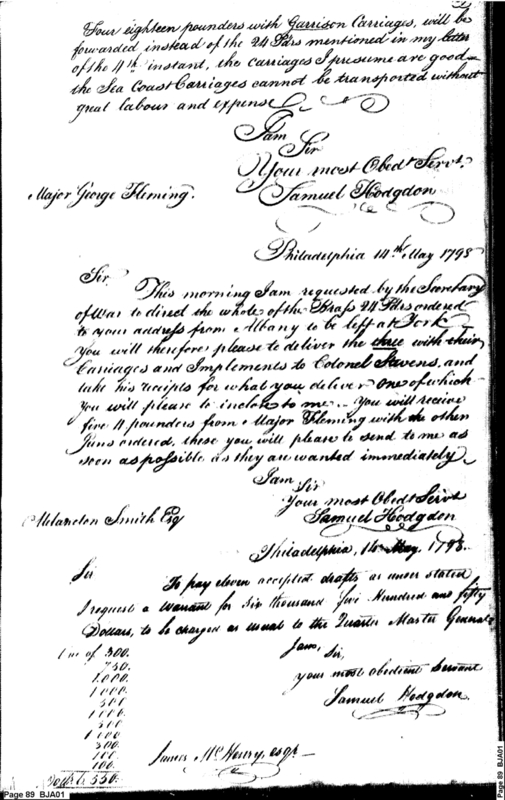 Four eighteen pounders with Garrison Carriages, will be
forwarded instead of the 24 Pdrs mentioned in my letter
of the 4th instant, the carriages I presume are good
the Sea Coast Carriages cannot be transported without
great labour and expense
I am
Sir
Your most Obedt Servt.
Samuel Hodgdon
Major George Fleming.
Philadelphia 14th May 1798
Sir
This morning I am requested by the Secretary
of War to direct the whole of the Brass 24 Pdrs ordered
to your address from Albany to be left at York
You will therefore please to deliver the three with their
Carriages and Implements to Colonel Stevens, and
take his receipts for what you deliver one of which
You will please to inclose to me. You will receive
five 4 pounders from Major Fleming with the other
Guns ordered, these you will please to send to me as
soon as possible as they are wanted immediately
I am
Sir
Your most Obedt Servt
Samuel Hodgdon
Melancton Smith Esq
Philadelphia, May, 1798.
Sir
To pay eleven accepted drafts as under stated
I request a warrant for Six thousand five Hundred and fifty
Dollars, to be charged as usual to the Quarter Master General
I am,
Sir,
your most obedient servant
Samuel Hodgdon
One of 300.
750.
1.000.
1000.
500
1000.
500
1000.
300.
100.
100.
James McHenry, esqr
Page 89 BJA01
Page 89 BJA01